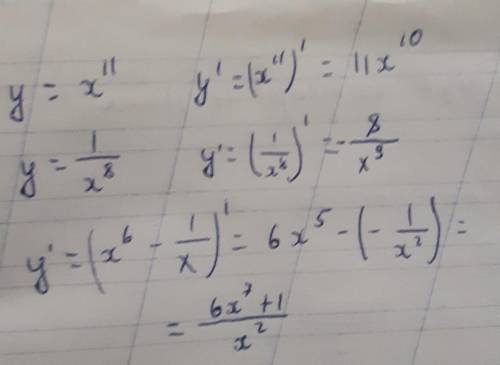 y = x¹¹ y' = (x¹¹)' = 11x¹⁰
y = 1/x⁸ y' = (1/x⁸)' = -8/x⁹
y' = (x⁶ - 1/x)' = 6x⁵ - (-1/x²) =
= (6x⁷ + 1)/x²